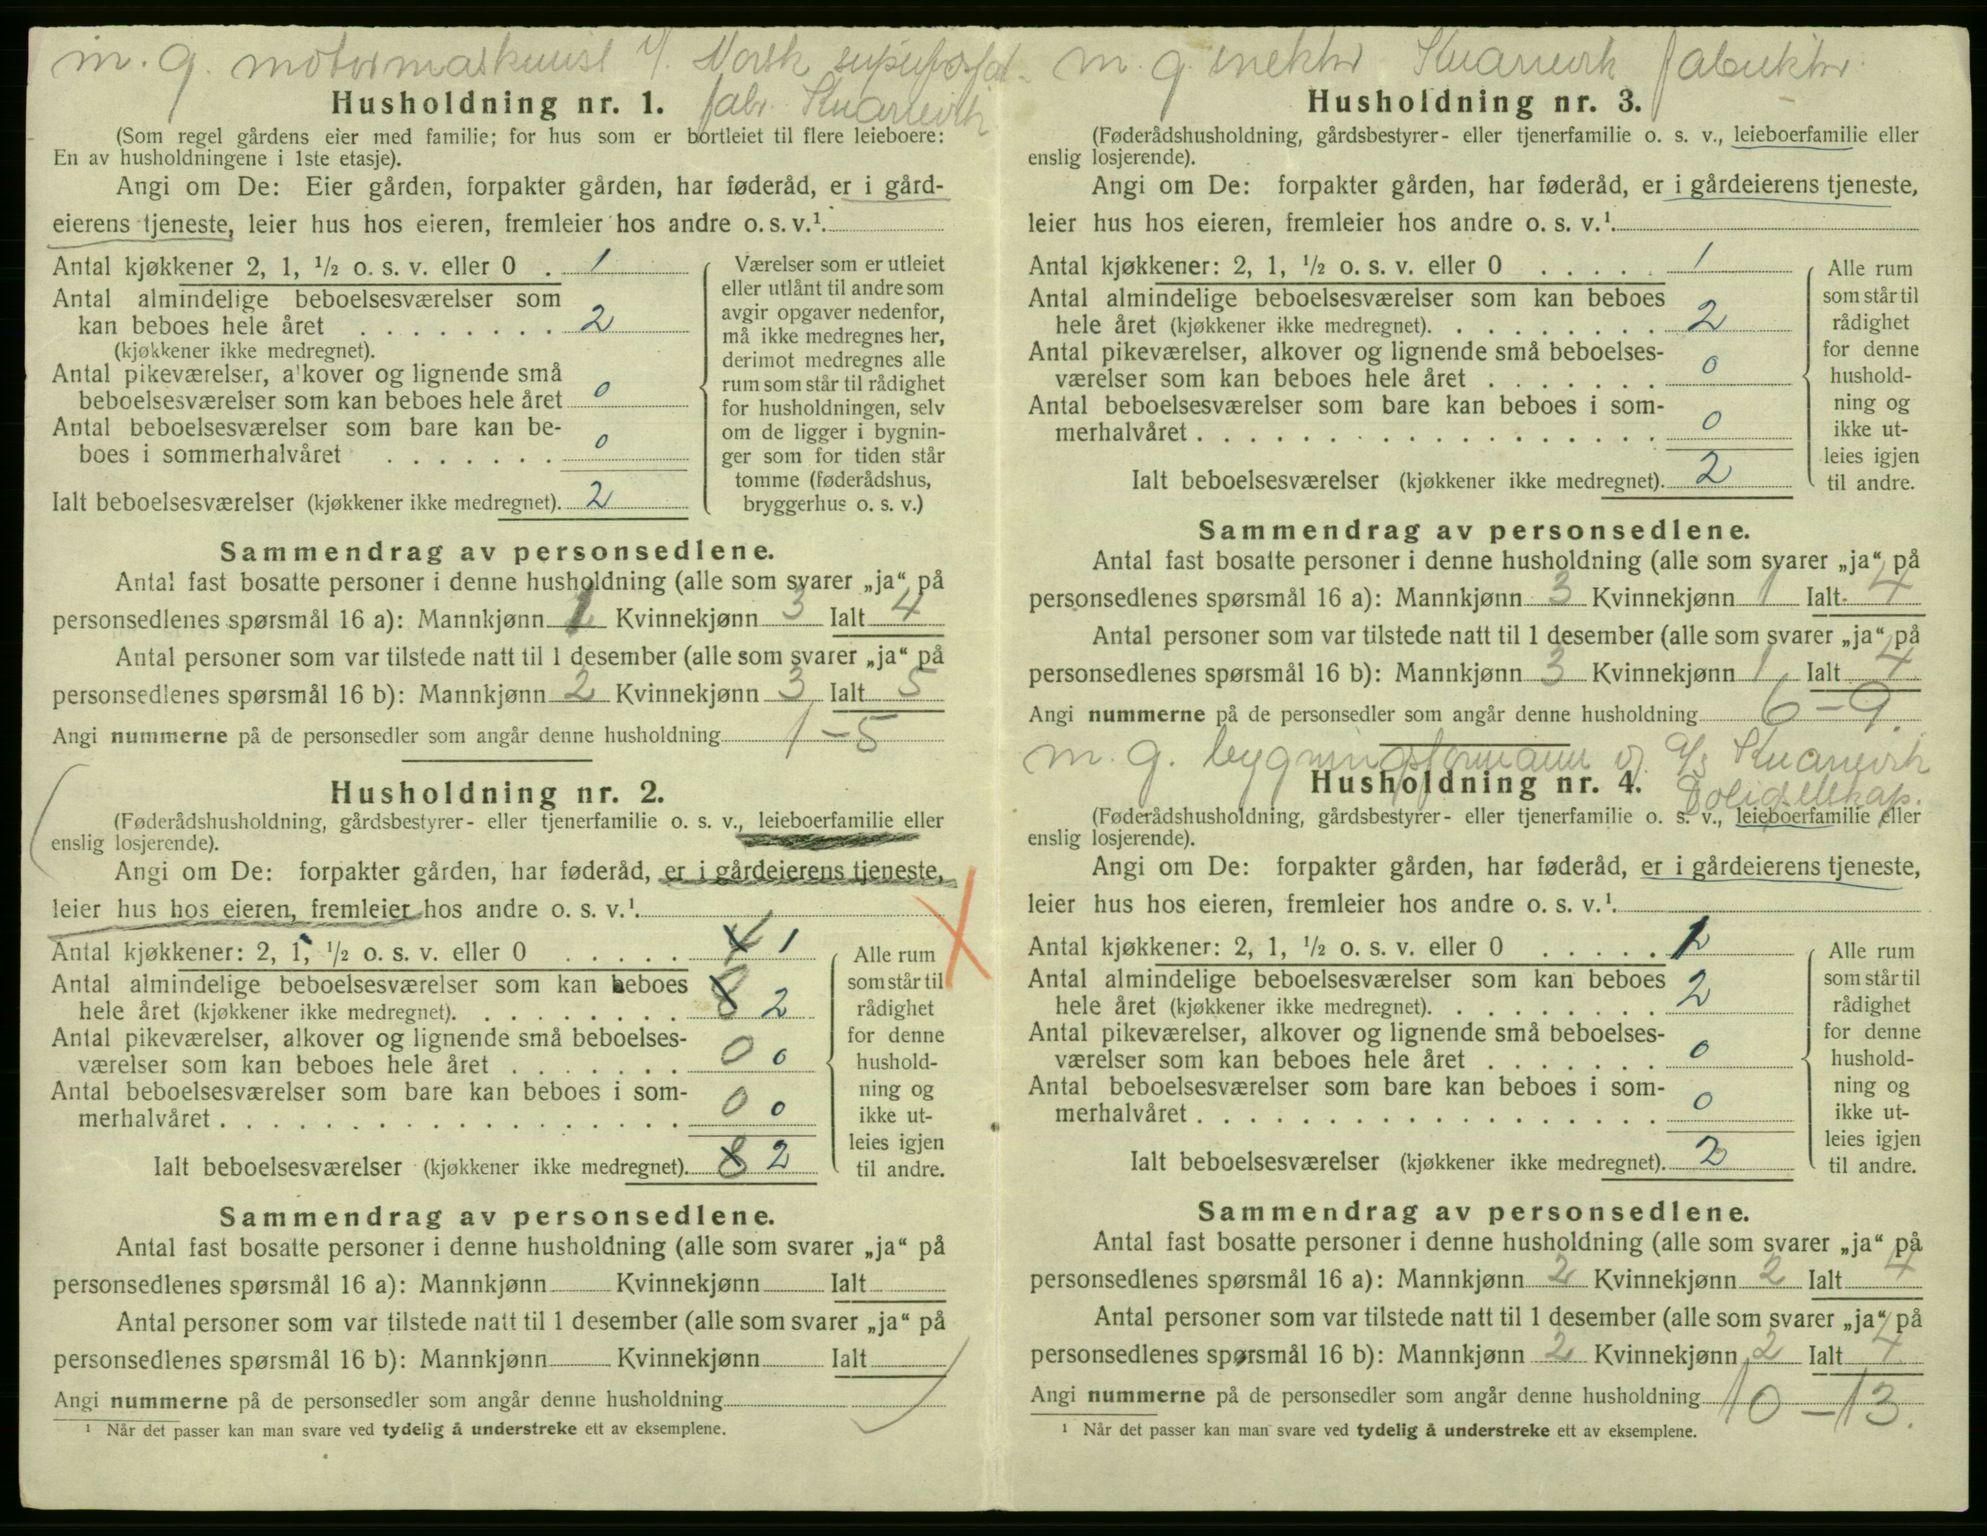 m. g. motormaskinist v/ Norsk superfosfat-
fabr. Knarrevik
Husholdning nr. 1.
(Som regel gårdens eier med familie; for hus som er bortleiet til flere leieboere:
En av husholdningene i 1ste etasje).
Angi om De: Eier gården, forpakter gården, har føderåd, er i gård-
eierens tjeneste, leier hus hos eieren, fremleier hos andre o. s. v.¹.
Antal kjøkkener 2, 1, ½ o. s. v. eller 0 . 1
Antal almindelige beboelsesværelser som
kan beboes hele året . . . . . . . . 2
(kjøkkener ikke medregnet).
Antal pikeværelser, alkover og lignende små
beboelsesværelser som kan beboes hele året 0
Antal beboelsesværelser som bare kan be-
boes i sommerhalvåret . . . . . . . 0
Ialt beboelsesværelser (kjøkkener ikke medregnet). 2
Værelser som er utleiet
eller utlånt til andre som
avgir opgaver nedenfor,
må ikke medregnes her,
derimot medregnes alle
rum som står til rådighet
for husholdningen, selv
om de ligger i bygnin-
ger som for tiden står
tomme (føderådshus,
bryggerhus o. s. v.)
Sammendrag av personsedlene.
Antal fast bosatte personer i denne husholdning (alle som svarer „ja“ på
personsedlenes spørsmål 16 a): Mannkjønn 1 Kvinnekjønn 3 Ialt 4
Antal personer som var tilstede natt til 1 desember (alle som svarer „ja“ på
personsedlenes spørsmål 16 b): Mannkjønn 2 Kvinnekjønn 3 Ialt 5
Angi nummerne på de personsedler som angår denne husholdning 1-5
Husholdning nr. 2.
(Føderådshusholdning, gårdsbestyrer- eller tjenerfamilie o. s. v., leieboerfamilie eller
enslig losjerende).
Angi om De: forpakter gården, har føderåd, er i gårdeierens tjeneste,
leier hus hos eieren, fremleier hos andre o. s. v.¹.
Antal kjøkkener: 2, 1, ½ o. s. v. eller 0 . . . . . 4 1
Antal almindelige beboelsesværelser som kan beboes
hele året (kjøkkener ikke medregnet). . . . . . . . . 8 2
Antal pikeværelser, alkover og lignende små beboelses-
værelser som kan beboes hele året . . . . . . . 0 0
Antal beboelsesværelser som bare kan beboes i som-
merhalvåret . . . . . . . . . . . . . . . . . . 0 0
Ialt beboelsesværelser (kjøkkener ikke medregnet). 8 2
Alle rum
som står til
rådighet
for denne
hushold-
ning og
ikke ut-
leies igjen
til andre.
Sammendrag av personsedlene.
Antal fast bosatte personer i denne husholdning (alle som svarer „ja“ på
personsedlenes spørsmål 16 a): Mannkjønn Kvinnekjønn Ialt
Antal personer som var tilstede natt til 1 desember (alle som svarer „ja“ på
personsedlenes spørsmål 16 b): Mannkjønn Kvinnekjønn Ialt
Angi nummerne på de personsedler som angår denne husholdning
¹ Når det passer kan man svare ved tydelig å understreke ett av eksemplene.
m. g. Knarrevik fabrikker
Husholdning nr. 3.
(Føderådshusholdning, gårdsbestyrer- eller tjenerfamilie o. s. v., leieboerfamilie eller
enslig losjerende).
Angi om De: forpakter gården, har føderåd, er i gårdeierens tjeneste,
leier hus hos eieren, fremleier hos andre o. s. v.¹.
Antal kjøkkener: 2, 1, ½ o. s. v. eller 0 . . . . . 1
Antal almindelige beboelsesværelser som kan beboes
hele året (kjøkkener ikke medregnet). . . . . . . . . 2
Antal pikeværelser, alkover og lignende små beboelses-
værelser som kan beboes hele året . . . . . . . 0
Antal beboelsesværelser som bare kan beboes i som-
merhalvåret . . . . . . . . . . . . . . . . . . 0
Ialt beboelsesværelser (kjøkkener ikke medregnet). 2
Alle rum
som står til
rådighet
for denne
hushold-
ning og
ikke ut-
leies igjen
til andre.
Sammendrag av personsedlene.
Antal fast bosatte personer i denne husholdning (alle som svarer „ja“ på
personsedlenes spørsmål 16 a): Mannkjønn 3 Kvinnekjønn 1 Ialt 4
Antal personer som var tilstede natt til 1 desember (alle som svarer „ja“ på
personsedlenes spørsmål 16 b): Mannkjønn 3 Kvinnekjønn 1 Ialt 4
Angi nummerne på de personsedler som angår denne husholdning 6-9.
m. g. bygningsformann v. A/s Knarrevik
Boligselskap.
Husholdning nr. 4.
(Føderådshusholdning, gårdsbestyrer- eller tjenerfamilie o. s. v., leieboerfamilie eller
enslig losjerende).
Angi om De: forpakter gården, har føderåd, er i gårdeierens tjeneste,
leier hus hos eieren, fremleier hos andre o. s. v.¹.
Antal kjøkkener: 2, 1, ½ o. s. v. eller 0 . . . . . 1
Antal almindelige beboelsesværelser som kan beboes
hele året (kjøkkener ikke medregnet). . . . . . . . . 2
Antal pikeværelser, alkover og lignende små beboelses-
værelser som kan beboes hele året . . . . . . . 0
Antal beboelsesværelser som bare kan beboes i som-
merhalvåret . . . . . . . . . . . . . . . . . . 0
Ialt beboelsesværelser (kjøkkener ikke medregnet). 2
Alle rum
som står til
rådighet
for denne
hushold-
ning og
ikke ut-
leies igjen
til andre.
Sammendrag av personsedlene.
Antal fast bosatte personer i denne husholdning (alle som svarer „ja“ på
personsedlenes spørsmål 16 a): Mannkjønn 2 Kvinnekjønn 2 Ialt 4
Antal personer som var tilstede natt til 1 desember (alle som svarer „ja“ på
personsedlenes spørsmål 16 b): Mannkjønn 2 Kvinnekjønn 2 Ialt 4
Angi nummerne på de personsedler som angår denne husholdning 10-13.
¹ Når det passer kan man svare ved tydelig å understreke ett av eksemplene.